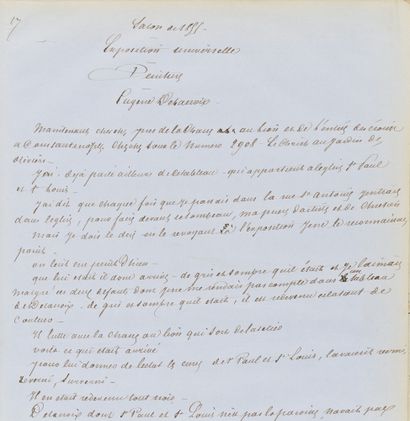 17
Salon de 1855
Exposition universelle
Peinture
Eugène Delacroix
Maintenant cherchez près de la Chasse au lion et de l'entrée des croisés
à Constantinople, cherchez sous le numéro 2908 - Le Christ au Jardin des
oliviers -
J'ai déjà parlé ailleurs de ce tableau - qui appartient à l'église St Paul
et St Louis -
J'ai dit que chaque fois que je passais dans la rue St Antoine j'entrais
dans l'église, pour faire devant ce tombeau, ma prière d'artiste et de Chrétien
Mais je dois le dire en le revoyant à l'exposition je ne le reconnaissais
point -
on l'eut en
que lui était il donc arrivé - de gris et sombre qu'il était et j'aimais
malgré un défaut dont je ne me rendais pas compte dans un tableau
de Delacroix - de gris et sombre qu'il était, il est redevenu éclatant de
couleur -
Il lutte avec la chasse au lion qui sort de l'atelier
voilà ce qui était arrivé
pour lui donner de l'éclat le curé de St Paul et St Louis, l'avait verni,
reverni, surverni -
Il en était redevenu tout noir -
Delacroix dont St Paul et St Louis n'est pas la paroisse n'avait pas